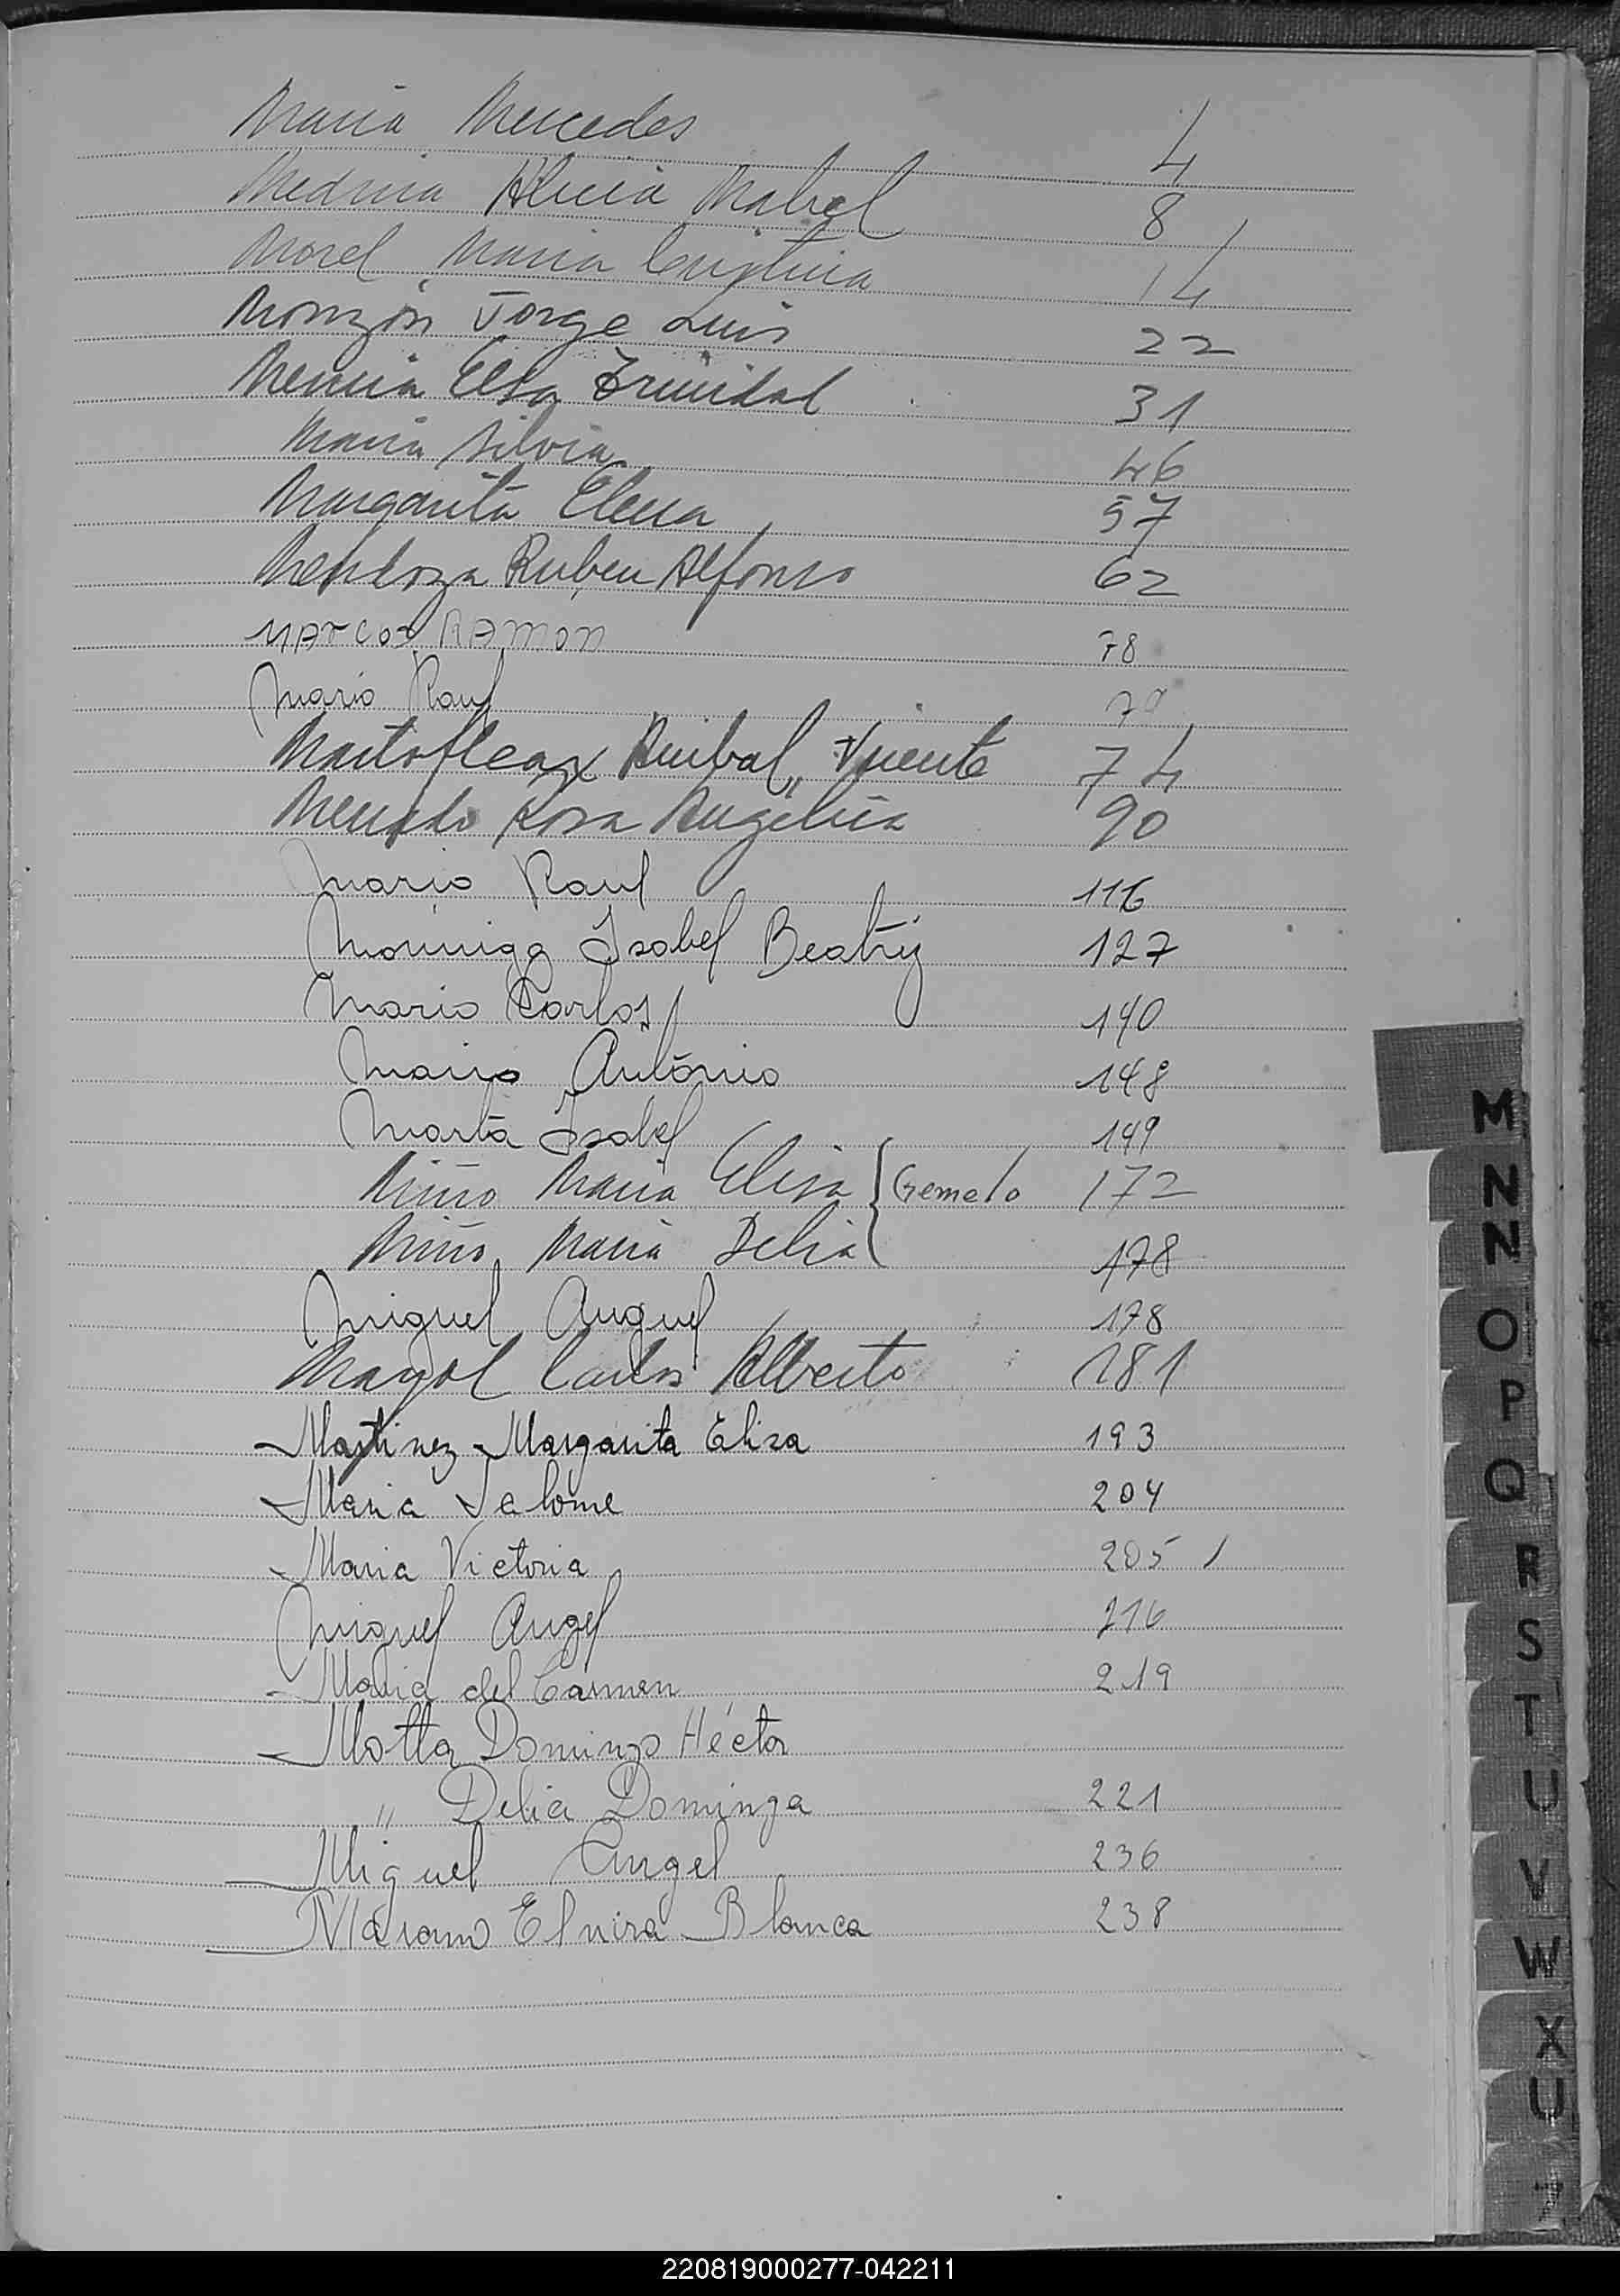 Maria Mercedes 4
Medina Alicia Mabel 8
Morel Maria Cristina 14
Monzón Jorge Luis 22
Elsa Trinidad 31
Maria Silvia 46
Margarita Elena 57
Mendoza Ruben Alfonso 62
Marcos RAMON 78
Mario Raul 79
Anibal Vicente 74
Rosa Angelica 90
Mario Raul 116
Morinigo Isabel Beatriz 127
Mario Carlos 140
Mario Antonio 148
Marta Isabel 149
Miño Maria Elisa Gemelo 172
Miño Maria Delia 178
Miguel Anguel 178
Mayol Carlos Alberto 181
Martinez Margarita Elisa 193
Maria Salome 204
Maria Victoria 205
Miguel Angel 216
Maria del Carmen 219
Motta Domingo Héctor
" Delia Dominga 221
Miguel Angel 236
Elvira Blanca 238
M
N
N
O
P
Q
R
S
T
U
V
W
X
U
220819000277-042211